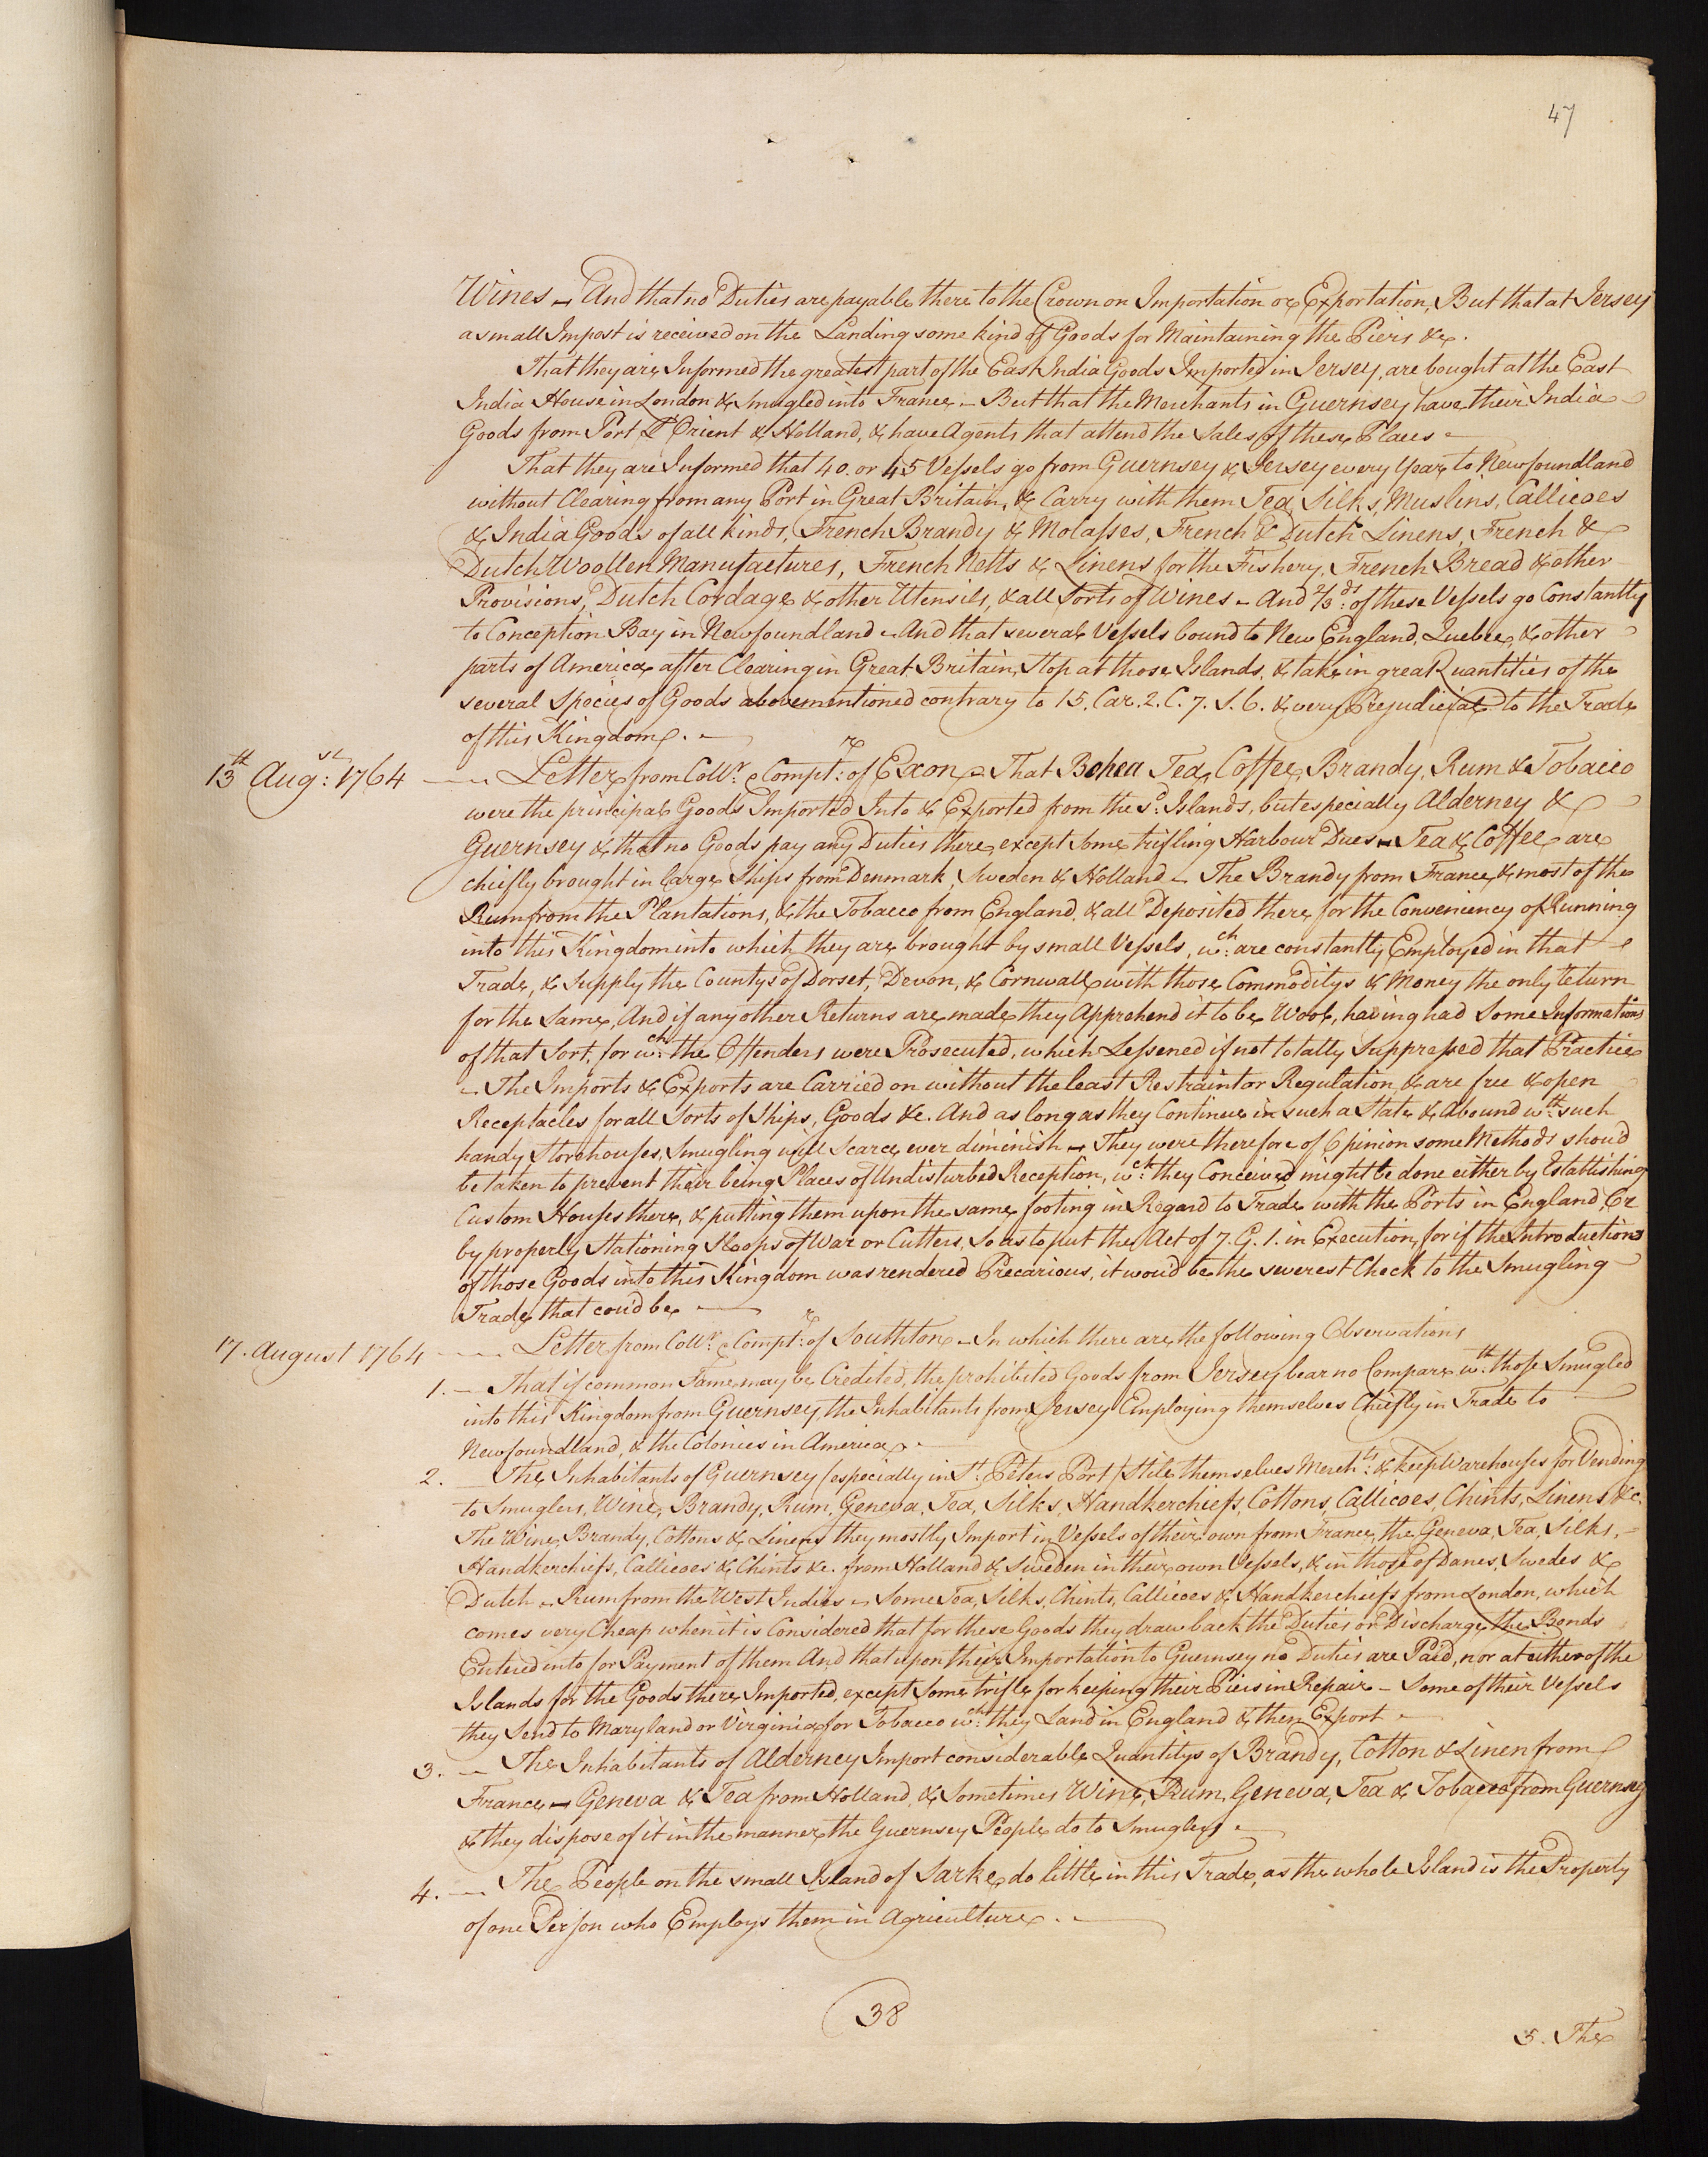 47
Wines – And that no Duties are payable there to the Crown on Importation or Exportation, But that at Jersey
a small Impost is received on the Landing some kind of Goods for Maintaining the Piers &c.
That they are Informed the greatest part of the East India Goods Imported in Jersey, are bought at the East
India House in London & Smugled into France – But that the Merchants in Guernsey have their India
Goods from Port L'Orient & Holland, & have Agents that attend the Sales of these Places –
That they are Informed that 40. or 45 Vessels go from Guernsey & Jersey every Year to Newfoundland
without Clearing from any Port in Great Britain, & Carry with them Tea, Silks, Muslins, Callicoes
& India Goods of all kinds, French Brandy & Molasses, French & Dutch Linens, French &
Dutch Woollen Manufactures, French Netts & Linens for the Fishery, French Bread & other
Provisions, Dutch Cordage & other Utensils, & all Sorts of Wines – And 2/3ds: of these Vessels go Constantly
to Conception Bay in Newfoundland – And that several Vessels bound to New England, Quebec, & other
parts of America after Clearing in Great Britain, Stop at those Islands, & take in great Quantities of the
several Species of Goods abovementioned contrary to 15. Car. 2. C. 7. S. 6. & very Prejudicial to the Trade
of this Kingdom. –
13th Augst: 1764 – Letter from Collr. & Comptr: of Exon – That Bohea Tea, Coffee, Brandy, Rum & Tobacco
were the principal Goods Imported Into & Exported from the sd. Islands, but especially Alderney &
Guernsey & that no Goods pay any Duties there, except Some trifling Harbour Dues – Tea & Coffee are
chiefly brought in large Ships from Denmark, Sweden & Holland – The Brandy from France, & most of the
Rum from the Plantations, & the Tobacco from England, & all Deposited there for the Conveniency of Running
into this Kingdom into which they are brought by small Vessels, wch: are constantly Employed in that
Trade, & Supply the Countys of Dorset, Devon, & Cornwall with those Commoditys & Money the only Return
for the Same, And if any other Returns are made they Apprehend it to be Wool, having had Some Informations
of that Sort, for wch: the Offenders were Prosecuted, which Lessened if not totally Suppressed that Practice
– The Imports & Exports are Carried on without the least Restraint or Regulation, & are free & open
Receptacles for all Sorts of Ships, Goods &c. And as long as they Continue in such a State & Abound wth: such
handy Storehouses, Smugling will Scarce ever diminish – They were therefore of Opinion some Methods shou'd
be taken to prevent their being Places of Undisturbed Reception, wch: they Conceived might be done either by Establishing
Custom Houses there, & putting them upon the same footing in Regard to Trade with the Ports in England, Or
by properly Stationing Sloops of War or Cutters, So as to put the Act of 7. G. 1. in Execution, for if the Introduction
of those Goods into this Kingdom was rendered Precarious, it wou'd be the severest Check to the Smugling
Trade that cou'd be –
17. August 1764 – Letter from Collr. & Comptr: of Southton – In which there are the following Observations
1. – That if common Fame may be Credeted, the prohibited Goods from Jersey bear no Compare wth: those Smugled
into this Kingdom from Guernsey, the Inhabitants from Jersey Employing themselves Chiefly in Trade to
Newfoundland, & the Colonies in America –
2. – The Inhabitants of Guernsey (especially in St. Peters Port) Stile themselves Merchts: & keep Warehouses for Vending
to Smuglers, Wine, Brandy, Rum, Geneva, Tea, Silks, Handkerchiefs, Cottons, Callicoes, Chints, Linens &c.
The Wine, Brandy, Cottons & Linens they mostly Import in Vessels of their own from France, the Geneva, Tea, Silks, –
Handkerchiefs, Callicoes & Chints &c. from Holland & Sweden in their own Vessels, & in those of Danes, Swedes &
Dutch – Rum from the West Indies – Some Tea, Silks, Chints, Callicoes & Handkerchiefs from London, which
comes very Cheap when it is Considered that for these Goods they draw back the Duties or Discharge the Bonds
Entered into for Payment of them And that upon their Importation to Guernsey no Duties are Paid, nor at either of the
Islands for the Goods there Imported, except Some trifle for keeping their Piers in Repair – Some of their Vessels
they Send to Maryland or Virginia for Tobacco wch: they Land in England & then Export –
3. – The Inhabitants of Alderney Import considerable Quantitys of Brandy, Cotton & Linen from
France – Geneva & Tea from Holland, & Sometimes Wine, Rum, Geneva, Tea & Tobacco from Guernsey
& they dispose of it in the manner the Guernsey People do to Smuglers –
4. – The People on the small Island of Sarke do little in this Trade, as the whole Island is the Property
of one Person who Employs them in Agriculture. –
38
5. The